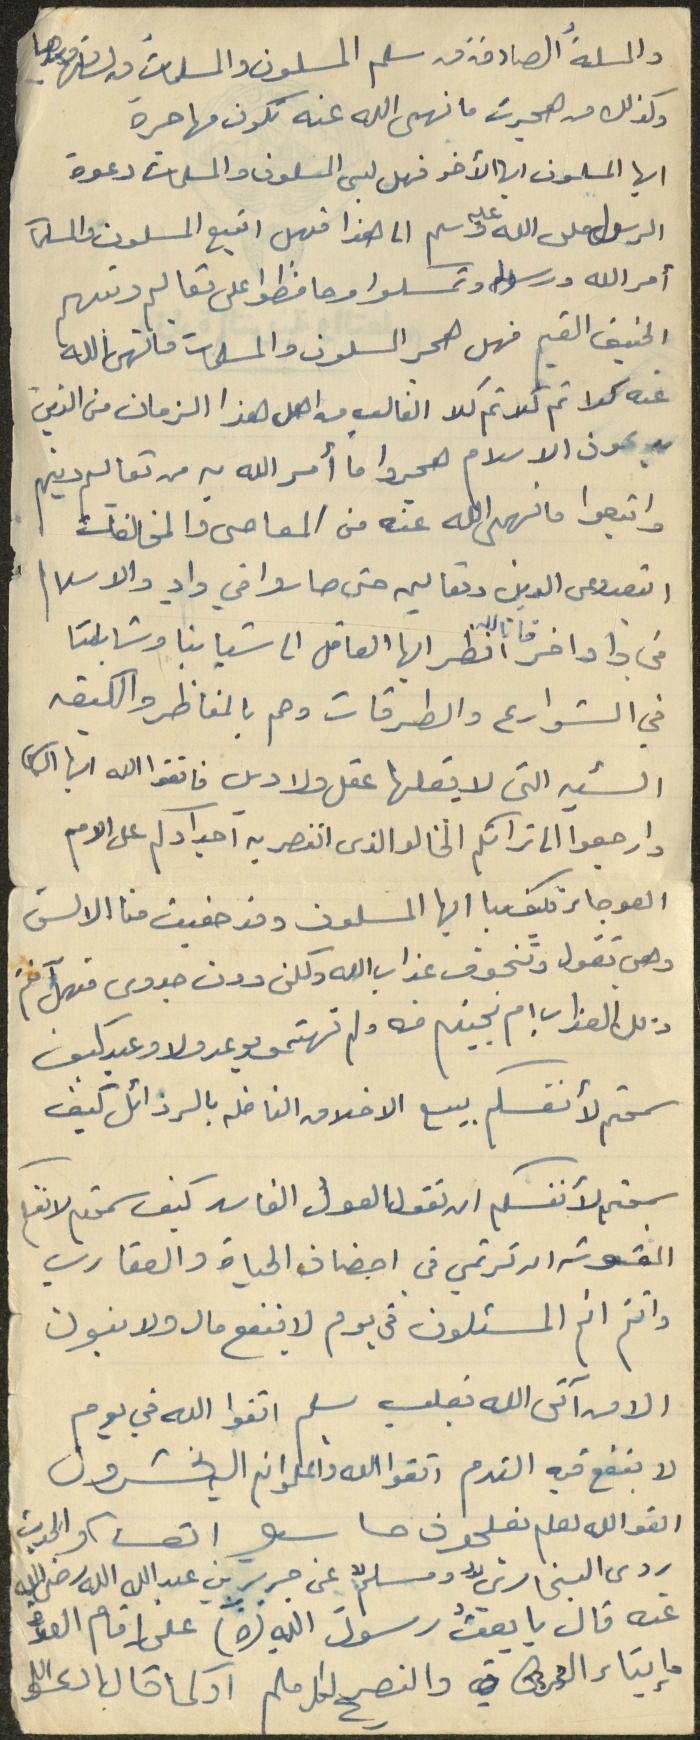 والمسلمةُ الصادقة من سلم المسلمون والمسلمات من لسانها ويدها
وكذلك من هجرت ما نهى الله عنه تكون مهاجرة
ايها المسلمون ايها الأخوة فهل لبى المسلمون والمسلمات دعوة
الرسول صلى الله عليه وسلم الى هذا فهل اتبع المسلمون والمسلمات
أمر الله ورسوله وتمسكوا وحافظوا على تعاليم دينهم
الحنيف القيم فهل هجر المسلمون والمسلمات ما نهى الله
عنه كلا ثم كلا ثم كلا الغالب من اهل هذا الزمان من الذين
يدعون الاسلام هجروا ما أمر الله به من تعاليم دينهم
واتبعوا ما نهى الله عنه من المعاصي والمخالفات
ابتعدوا عن الدين وتعاليمه حتى صاروا في وادٍ والاسلام
في واد اخر فانا لله انظر ايها العاقل الى شبابنا وشاباتنا
في الشوارع والطرقات وهم بالمناظر والكيفيه
السيئه التي لا يقبلها عقل ولا دين فاتقوا الله ايها
وارجعوا الى تراثكم الخالد الذي انتصر به أجدادكم على الامم
العوجاء كيف بنا ايها المسلمون وقد جفيت منا الالسن
وهي تقول وتخوف عذاب الله ولكن دون جدوى فهل
ذلك العذاب ام نجيتم منه ولم تهتموا بوعد ولا وعيد كيف
سمحتم لأنفسكم ببيع الاخلاق الفاضله بالرذائل كيف
سمحتم لأنفسكم ان تقول القول الفاسد كيف سمحتم لانفسكم
ان ترتمي في احضان الحياة والعقارب
وانتم انتم المسئلون في يوم لا ينفع مال ولا بنون
الا من آتى الله بقلب سليم اتقوا الله في يوم
لا ينفع فيه الندم اتقوا الله واعلموا انكم اليه تحشرون
اتقوا الله لعلكم تفلحون
روى البخاري ومسلم عن جرير بن عبد الله رضي الله
عنه قال بايعتُ رسول الله (ص) على إقام الصلاة
وإيتاء الزكاة والنصح لكل مسلم او كما قال